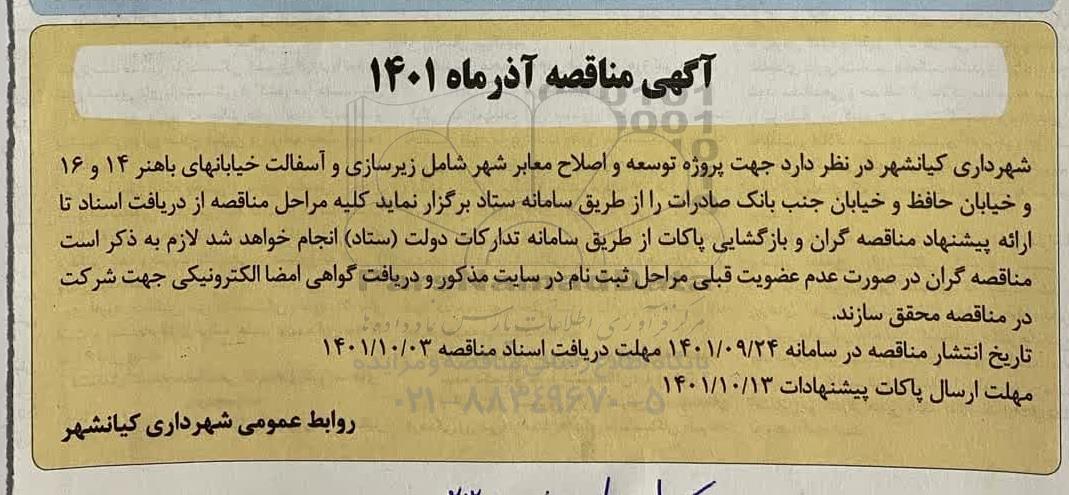 آگهی مناقصه آذرماه ۱۴۰۱
شهرداری کیانشهر در نظر دارد جهت پروژه توسعه و اصلاح معابر شهر شامل زیرسازی و آسفالت خیابانهای باهنر ۱۴ و ۱۶
و خیابان حافظ و خیابان جنب بانک صادرات را از طریق سامانه ستاد برگزار نماید کلیه مراحل مناقصه از دریافت اسناد تا
ارائه پیشنهاد مناقصه گران و بازگشایی پاکات از طریق سامانه تدارکات دولت (ستاد) انجام خواهد شد لازم به ذکر است
مناقصه گران در صورت عدم عضویت قبلی مراحل ثبت نام در سایت مذکور و دریافت گواهی امضا الکترونیکی جهت شرکت
در مناقصه محقق سازند.
تاریخ انتشار مناقصه در سامانه ۱۴۰۱/۰۹/۲۴ مهلت دریافت اسناد مناقصه ۱۴۰۱/۱۰/۰۳
مهلت ارسال پاکات پیشنهادات ۱۴۰۱/۱۰/۱۳
روابط عمومی شهرداری کیانشهر
مرکز فرآوری اطلاعات پارس نماد داده ها
پایگاه اطلاع رسانی مناقصه و مزایده
۰۲۱-۸۸۳۴۹۶۷۰-۵